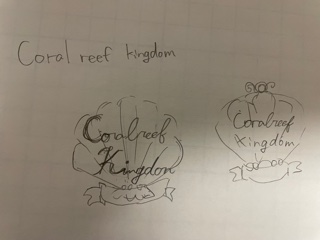 Coral reef kingdom
Coralreef
Kingdom
Coralreef
kingdom